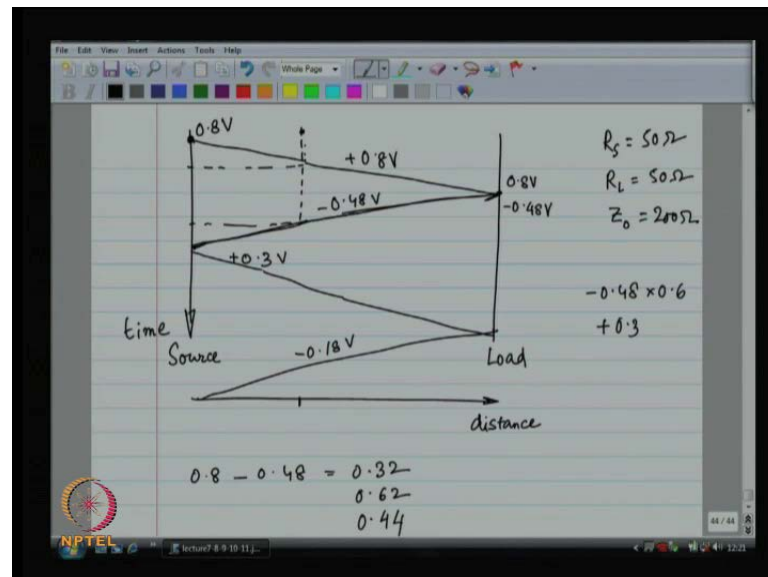 File Edit View Insert Actions Tools Help
Whole Page
B I
0.8V
+0.8V
0.8V
-0.48V
-0.48V
+0.3V
time
Source
-0.18V
Load
distance
R_S = 50Ω
R_L = 50Ω
Z_0 = 200Ω
-0.48 × 0.6
+0.3
0.8 - 0.48 = 0.32
0.62
0.44
44 / 44
NPTEL
lecture7-8-9-10-11.j...
12:21